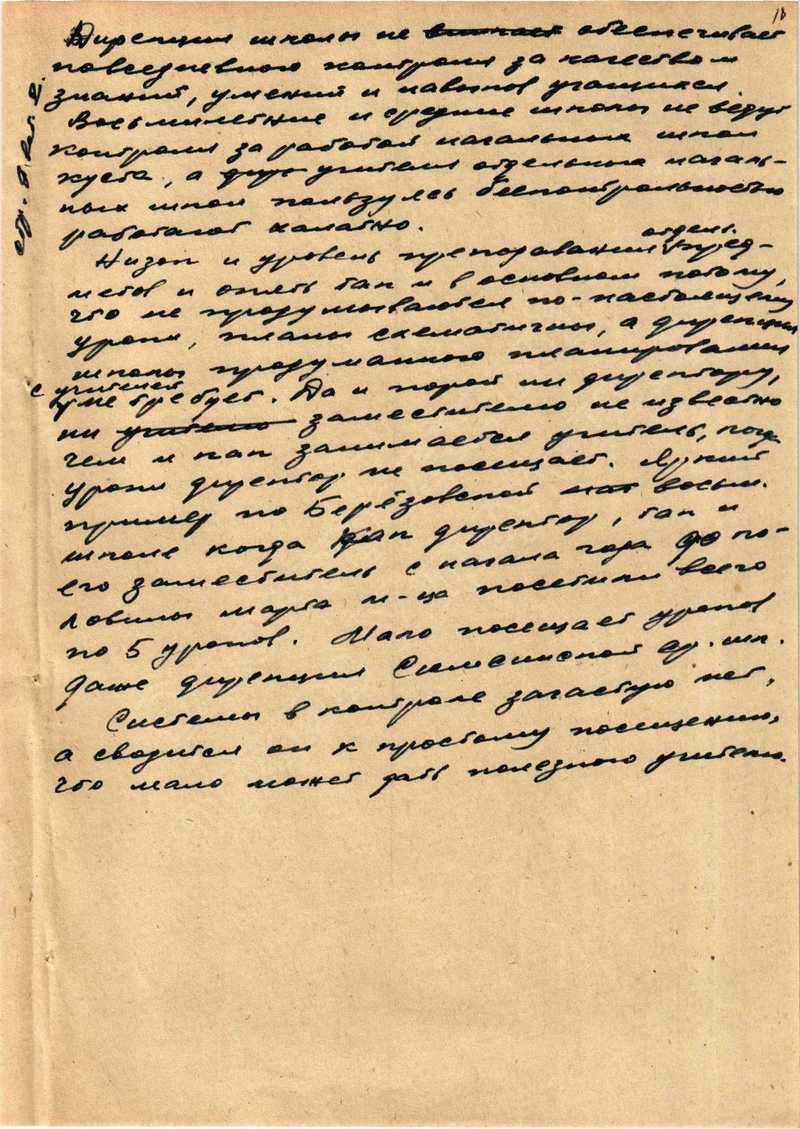 18
Дирекция школы не обеспечивает
повседневного контроля за качеством
знаний, умений и навыков учащихся.
Восьмилетние и средние школы не ведут
контроля за работой начальных школ
куста, а учителя отдельных началь-
ных школ пользуясь бесконтрольностью
работают халатно.
Низок и уровень преподавания отдельн. пред-
метов и опять так и в основном потому,
что не продумываются по-настоящему
уроки, планы схематичны, а дирекция
школы продуманного планирования
с учителей
не требует. Да и порой ни директору,
ни учителю заместителю не известно
чем и как занимается учитель, когда
уроки директор не посещает. Яркий
пример по Берёзовской восьм.
школе когда как директор, так и
его заместитель с начала года до по-
ловины марта м-ца посетили всего
по 5 уроков. Мало посещает уроков
даже дирекция ср. шк.
Системы в контроле зачастую нет,
а сводится он к простому посещению,
что мало может дать полезного учителю.